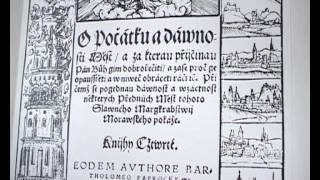 O Počátku a dáwno-
sti Měst / a za kterau přijčinau
Pán Bůh gim dobročečiti / a zase proč ge
opausstěti a w niweč obráceti ráčil. Při
čemž se pogednau dáwnost a wzáctnost
některych Předních Měst tohoto
Slawneho Margkrabstwij
Morawskeho pokáže.
Knihy Cztwrté.
EODEM AVTHORE BAR-
THOLOMEO PAPROCKY